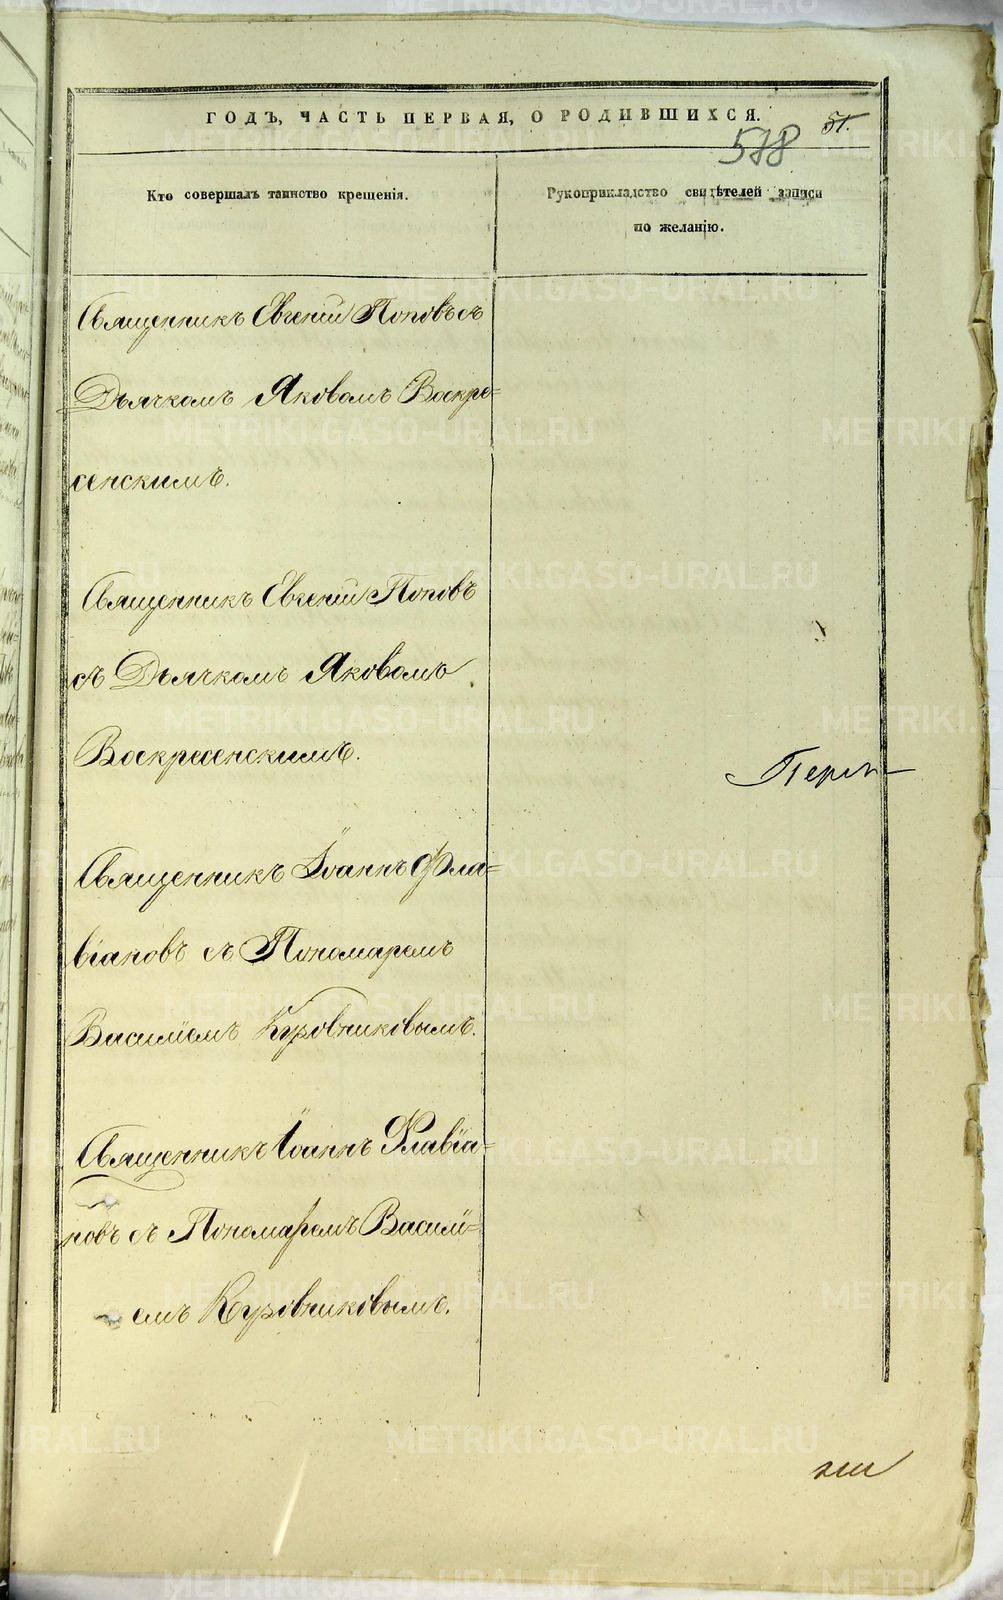 ГОДЪ, ЧАСТЬ ПЕРВАЯ, О РОДИВШИХСЯ.
51.
578
Кто совершалъ таинство крещенія.
Рукоприкладство свидѣтелей записи
по желанію.
Священникъ Евгеній Поповъ съ
Дьячкомъ Яковомъ Воскре-
сенскимъ.
Священникъ Евгеній Поповъ
съ Дьячкомъ Яковомъ
Воскресенскимъ.
Перм-
Священникъ Іоаннъ Фла-
віановъ съ Пономаремъ
Василіемъ Кузовниковымъ.
Священникъ Іоаннъ Флавіа-
новъ съ Пономаремъ Василі-
емъ Кузовниковымъ.
METRIKI.GASO-URAL.RU